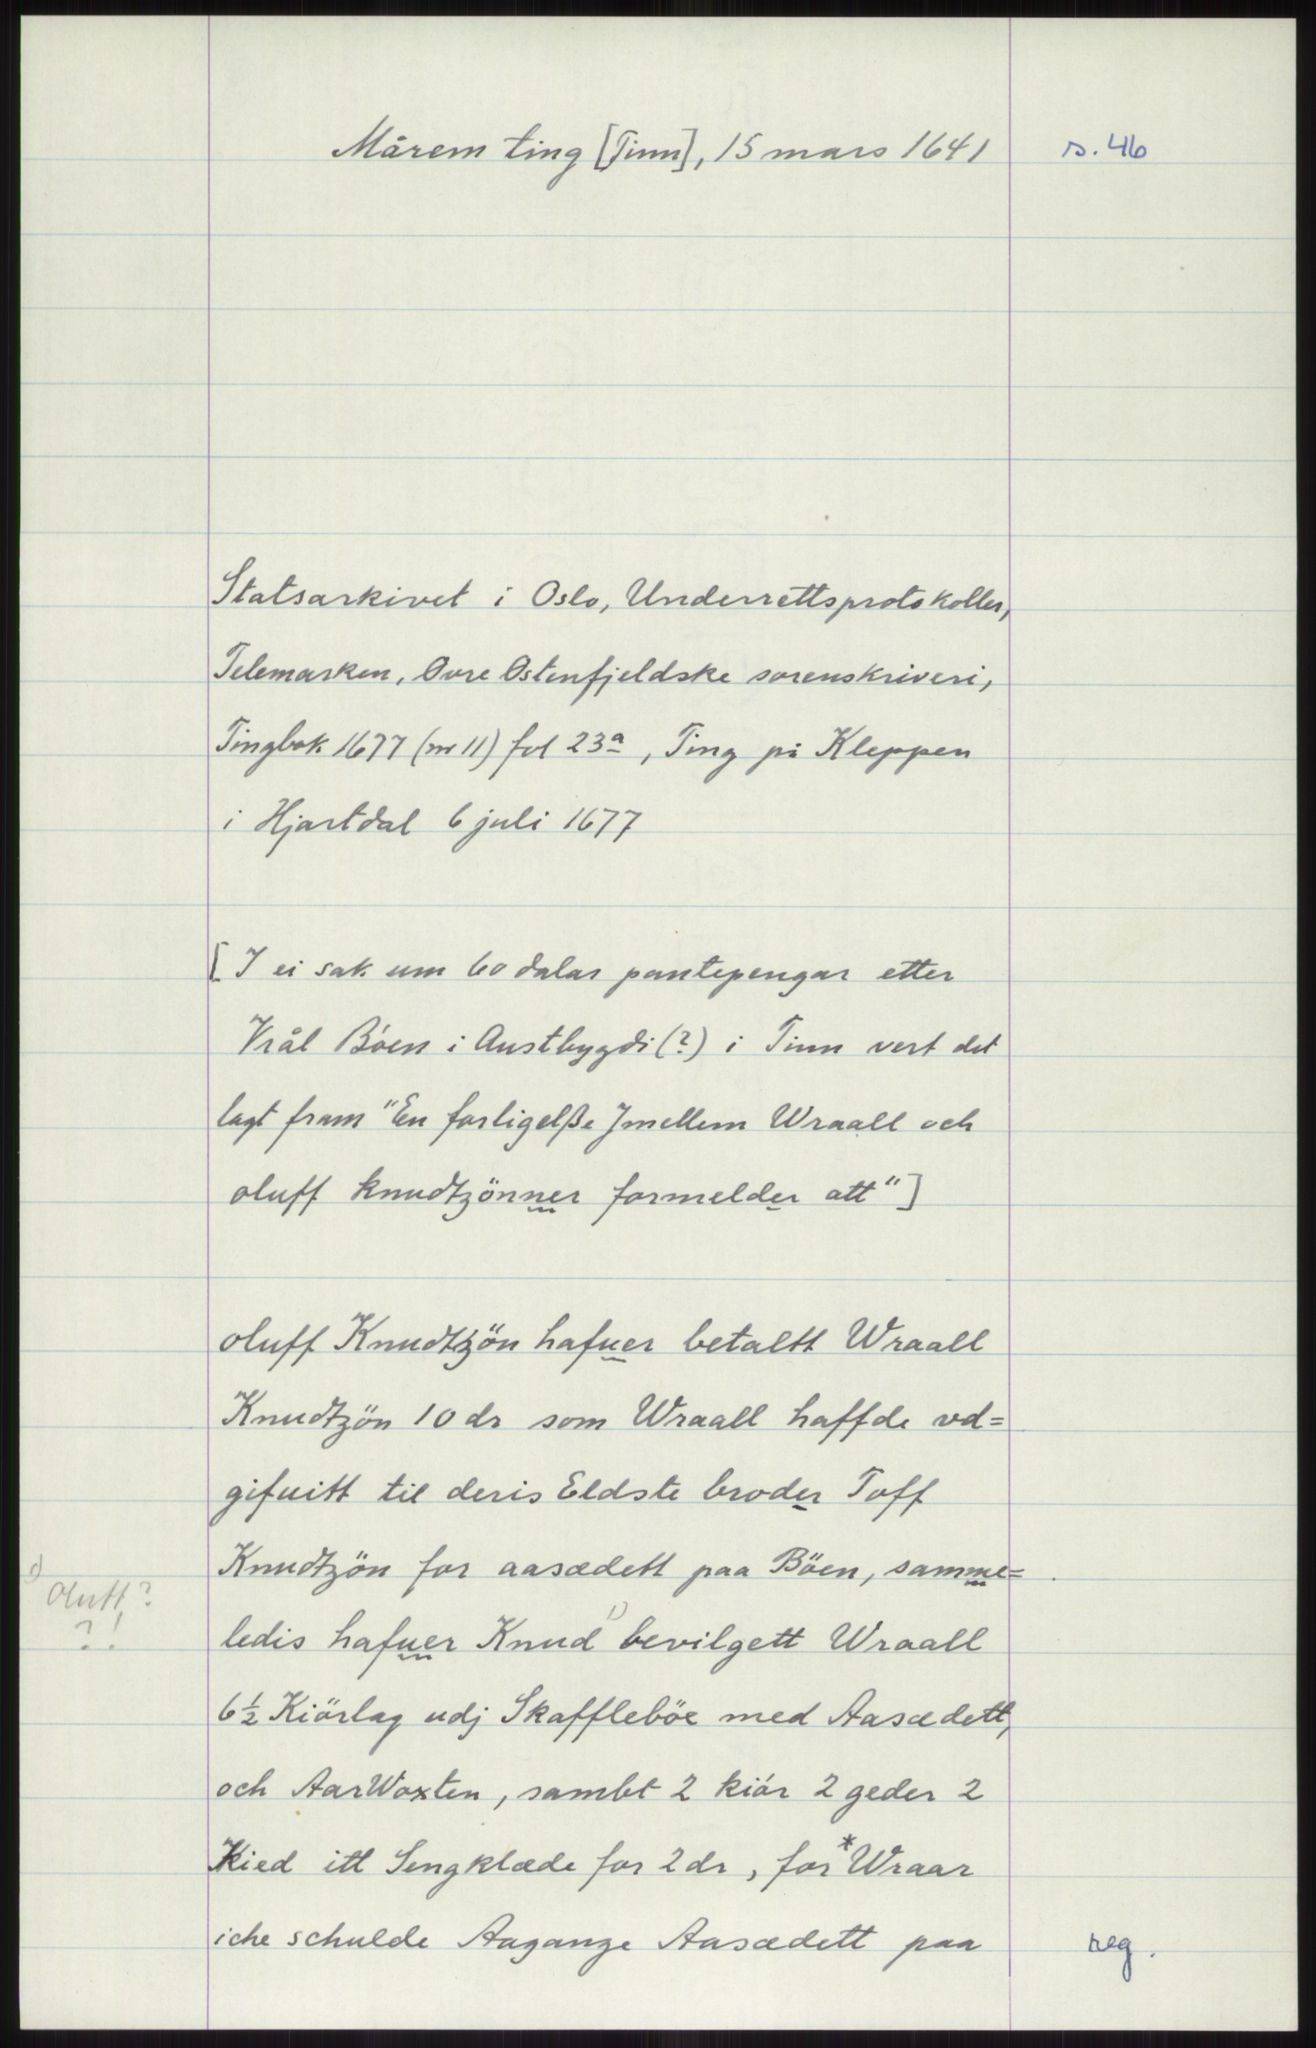 Mårem ting [Tinn], 15 mars 1641
s. 46
Statsarkivet i Oslo, Underrettsprotokoller,
Telemarken, Øvre Østenfjeldske sorenskriveri,
Tingbok 1677 (nr 11) fol 23a, Ting på Kleppen
i Hjartdal 6 juli 1677
[I ei sak um 60 dalar pantepengar etter
Vrål Bøen i Austbygdi (?) i Tinn vert det
lagt fram "En forligelße Jmellem Wraall och
oluff knudtzönner formelder att"]
oluff Knudtzön hafuer betaltt Wraall
Knudtzön 10 dr som Wraall haffde vd=
gifuitt til deris Eldste broder Toff
Knudtzön for aasædett paa Böen, samme=
ledis hafuer Knud 1) bevilgett Wraall
1) Oluff?
?!
6½ Kiörlag udj Skafflebøe med Aasædett,
och AarWoxten, sambt 2 kiör 2 geder 2
Kied itt Sengklæde for 2 dr, for *Wraar
iche schulde Aagange Aasædett paa
reg.